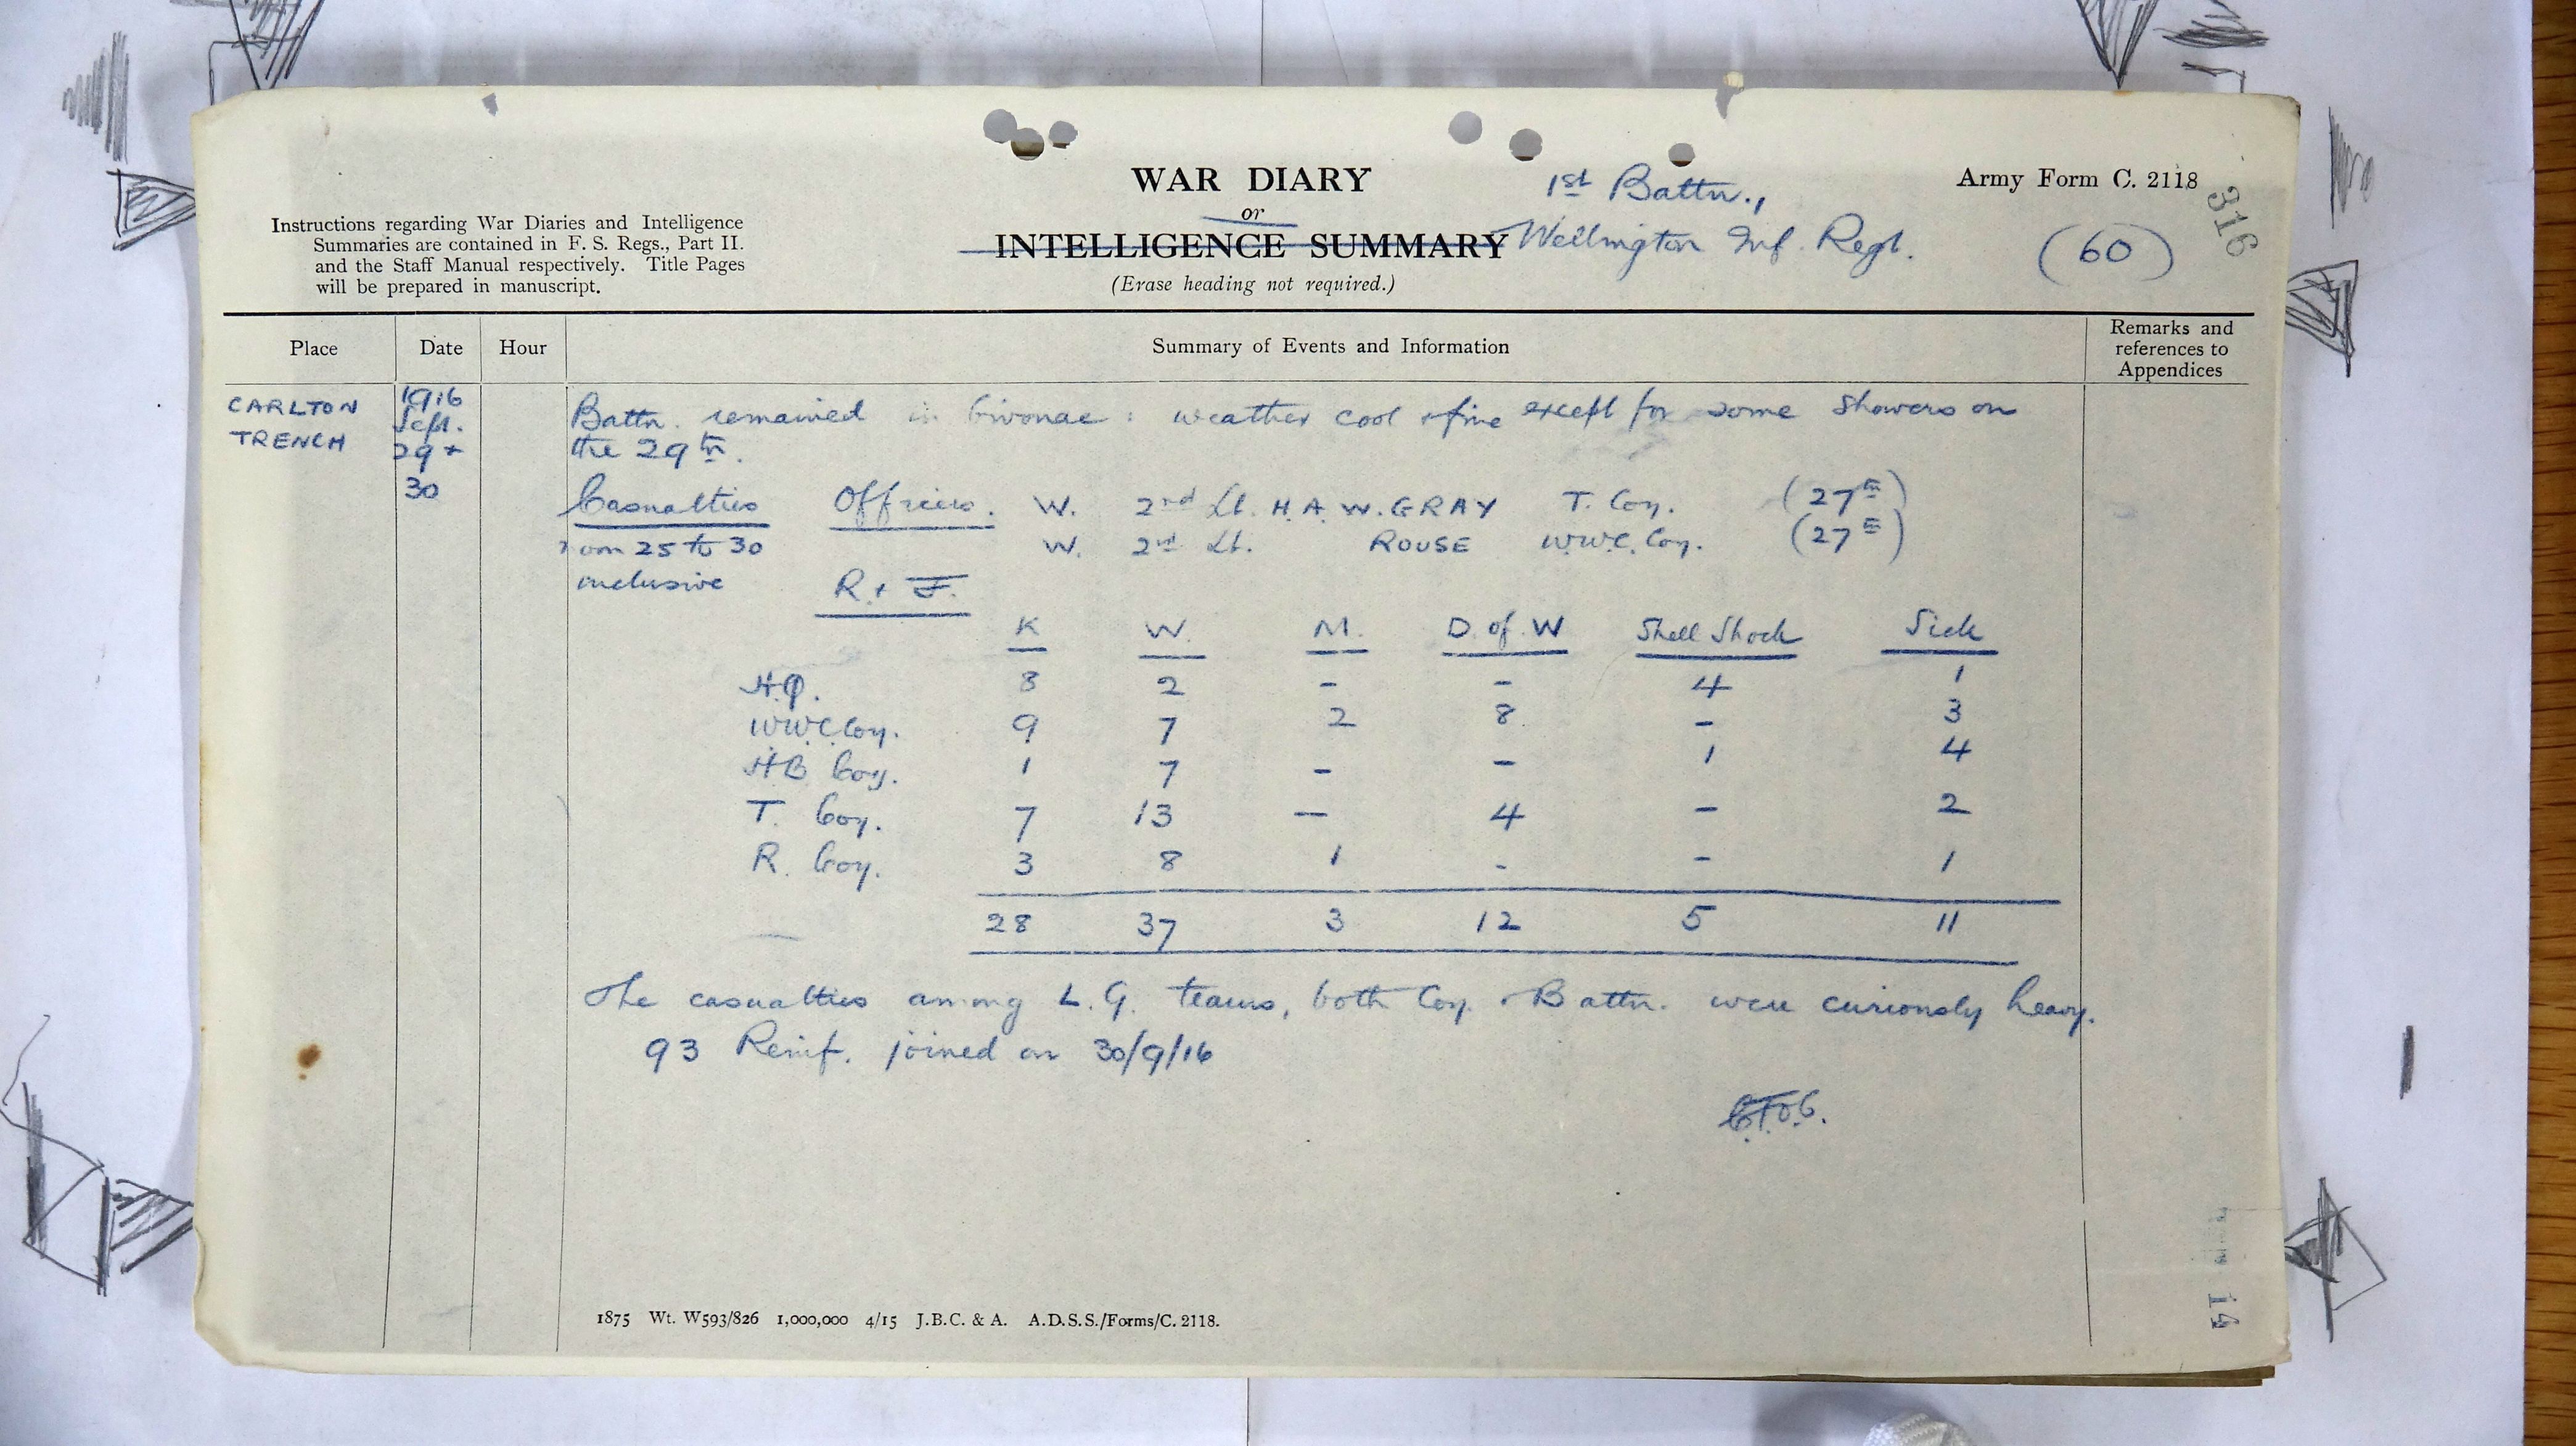 WAR DIARY
or
INTELLIGENCE SUMMARY
(Erase heading not required.)
1st Battn.,
Wellington Inf. Regt.
Army Form C. 2118
(60)
316
Instructions regarding War Diaries and Intelligence
Summaries are contained in F. S. Regs., Part II.
and the Staff Manual respectively. Title Pages
will be prepared in manuscript.
Place Date Hour Summary of Events and Information Remarks and
references to
Appendices
CARLTON
TRENCH
1916
Sept.
29 +
30
Battn. remained in bivouac : weather cool & fine except for some showers on
the 29th.
Casualties Officers. W. 2nd Lt. H. A. W. GRAY T. Coy. (27th)
rom 25 to 30 W. 2nd Lt. ROUSE W.W.C. Coy. (27th)
inclusive R. + F.
K W. M. D. of W Shell Shock Sick
H.Q. 8 2 - - 4 1
W.W.C Coy. 9 7 2 8. - 3
H.B Coy. 1 7 - - 1 4
T. Coy. 7 13 - 4 - 2
R. Coy. 3 8 1 - - 1
28 37 3 12 5 11
The casualties among L. G. teams, both Coy. & Battn. were curiously heavy.
93 Reinf. joined on 30/9/16
1875 Wt. W593/826 1,000,000 4/15 J.B.C. & A. A.D.S.S./Forms/C. 2118.